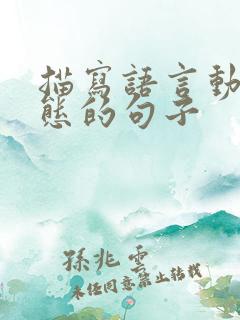 描寫語言動
態的句子
孫兆雲
未經同意禁止轉載